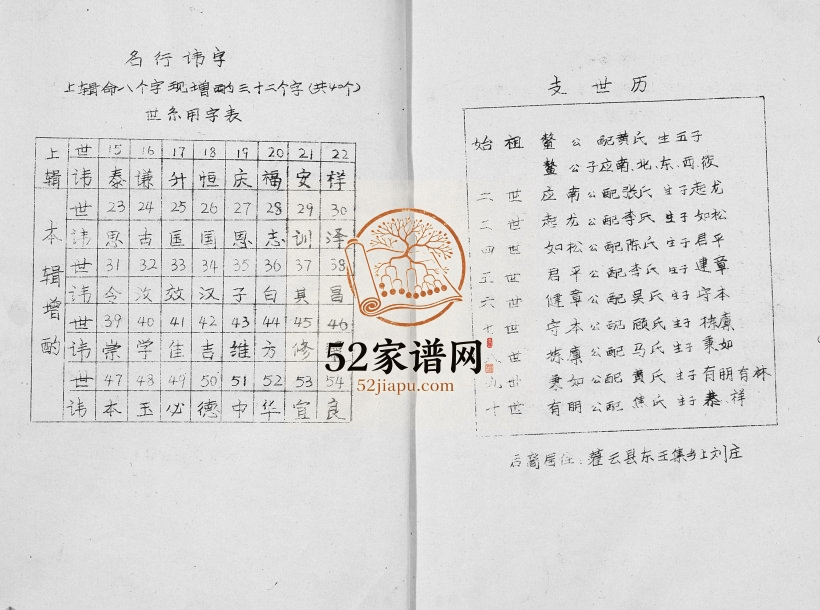 名行讳字
上辑命八个字现增酌三十二个字(共40个)
世系用字表
上辑
世 15 16 17 18 19 20 21 22
讳 泰 谦 升 恒 庆 福 安 祥
本辑增酌
世 23 24 25 26 27 28 29 30
讳 思 古 匡 国 恩 志 训 泽
世 31 32 33 34 35 36 37 38
讳 令 汝 效 汉 子 白 其 昌
世 39 40 41 42 43 44 45 46
讳 崇 学 佳 吉 维 方 修
世 47 48 49 50 51 52 53 54
讳 本 玉 必 德 中 华 宜 良
支世历
始祖 鳌公配黄氏生五子
鳌公子应南、北、东、西、
二世 应南公配张氏生子起龙
三世 起龙公配李氏生子如松
四世 如松公配陈氏生子君平
五世 君平公配李氏生子建章
六世 健章公配吴氏生子守本
七世 守本公配顾氏生子栋
八世 栋公配马氏生子秉如
九世 秉如公配黄氏生子有明有林
十世 有明公配焦氏生子恭、祥
后裔居住:灌云县东王集乡上刘庄
52家谱网
52jiapu.com